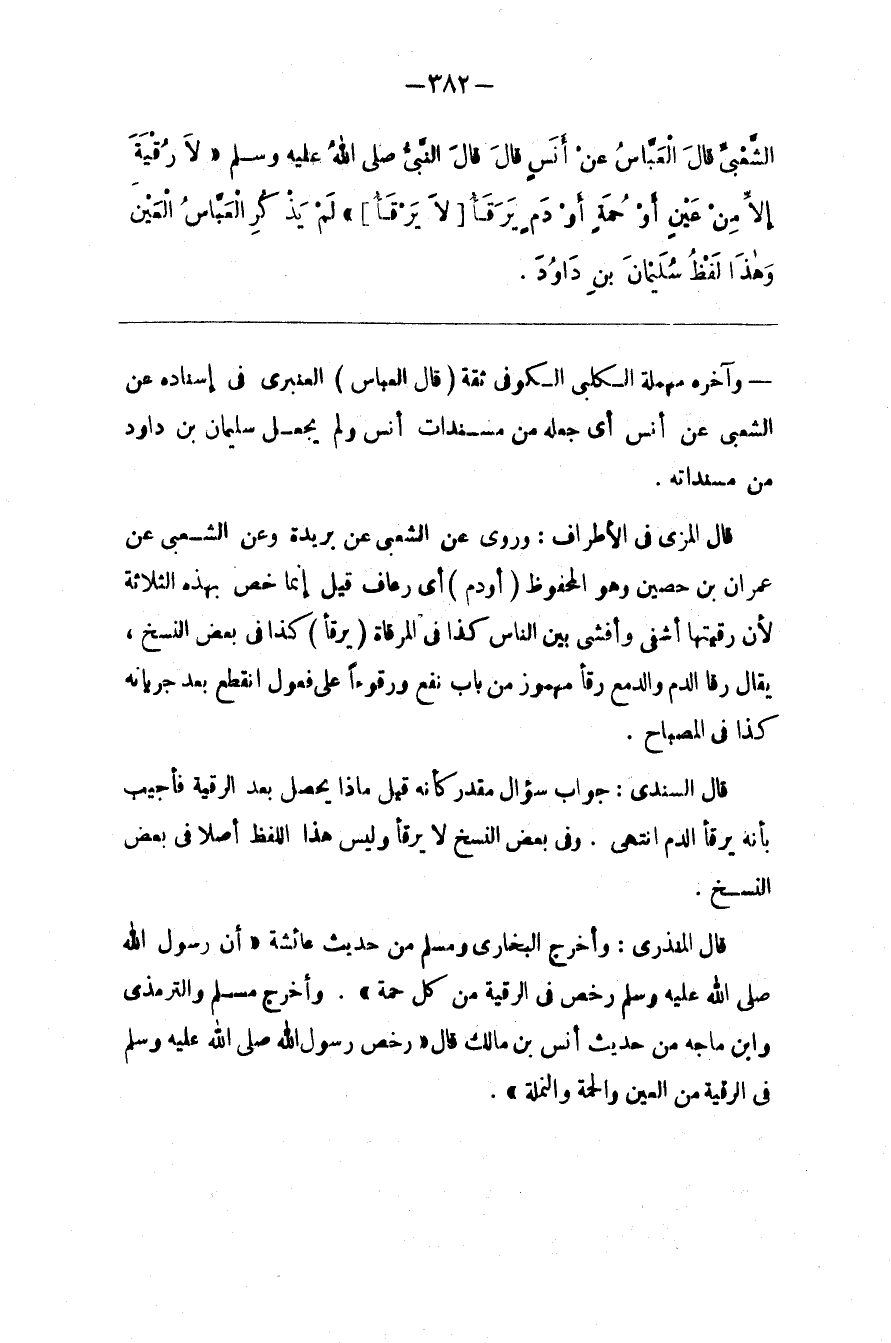 — ٣٨٢ —
الشَّعْبِىِّ قالَ الْعَبَّاسُ عنْ أَنَسٍ قالَ قالَ النَّبىُّ صلى اللهُ عليه وسلم « لاَ رُقْيَةَ
إلاَّ مِنْ عَيْنٍ أَوْ حُمَةٍ أَوْ دَمٍ يَرَقَأُ [ لاَ يَرْقَأُ ] » لَمْ يَذْكُرِ الْعَبَّاسُ الْعَيْنَ
وَهٰذَا لَفْظُ سُلَيْمَانَ بنِ دَاوُدَ .
— وآخره مهملة الكلبى الكوفى ثقة ( قال العباس ) العنبرى فى إسناده عن
الشعبى عن أنس أى جعله من مسندات أنس ولم يجعل سليمان بن داود
من مسنداته .
قال المزى فى الأطراف : وروى عن الشعبى عن بريدة وعن الشعبى عن
عمران بن حصين وهو المحفوظ ( أودم ) أى رعاف قيل إنما خص بهذه الثلاثة
لأن رقيتها أشفى وأفشى بين الناس كذا فى المرقاة ( يرقأ ) كذا فى بعض النسخ ،
يقال رقا الدم والدمع رقأ مهموز من باب نفع ورقوءاً على فعول انقطع بعد جريانه
كذا فى المصباح .
قال السندى : جواب سؤال مقدر كأنه قيل ماذا يحصل بعد الرقية فأجيب
بأنه يرقأ الدم انتهى . وفى بعض النسخ لا يرقأ وليس هذا اللفظ أصلا فى بعض
النسخ .
قال المنذرى : وأخرج البخارى ومسلم من حديث عائشة « أن رسول الله
صلى الله عليه وسلم رخص فى الرقية من كل حمة » . وأخرج مسلم والترمذى
وابن ماجه من حديث أنس بن مالك قال « رخص رسول الله صلى الله عليه وسلم
فى الرقية من العين والحمة والنملة » .